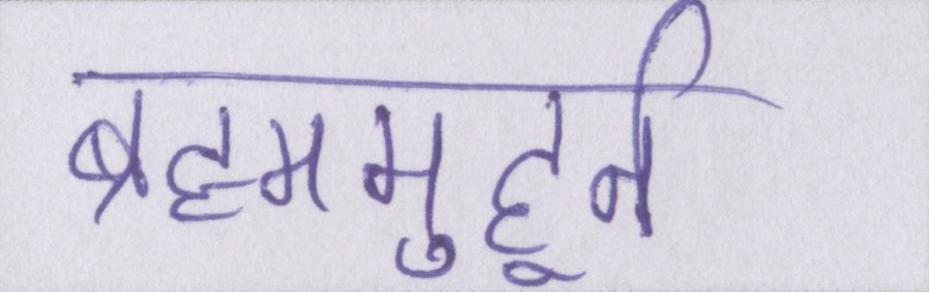 ब्रह्ममुहूर्त